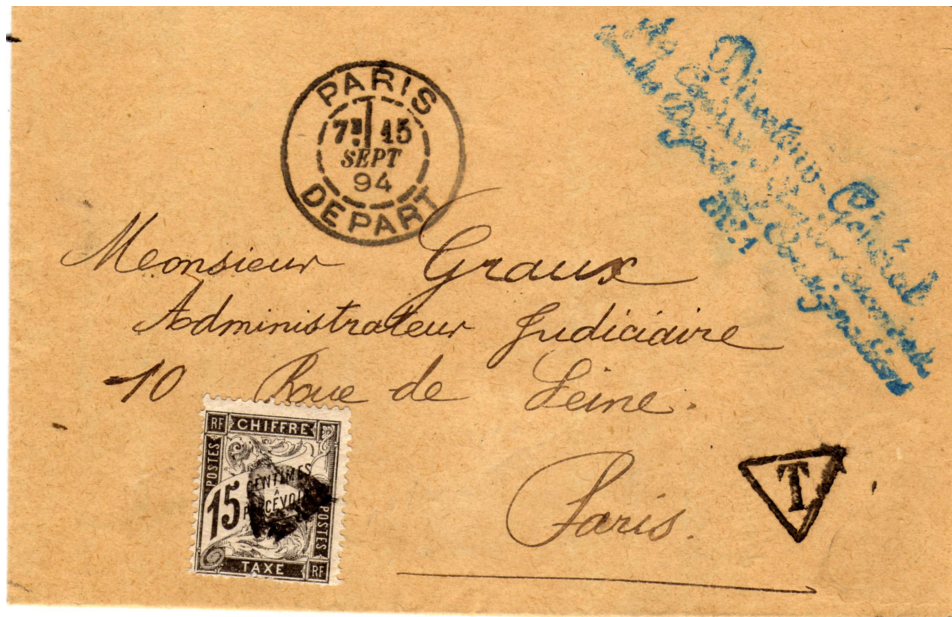 PARIS
7E 15
SEPT
94
DEPART
Directeur Général
de la Caisse d'Amortissement
et des Dépôts et Consignations
Monsieur Graux
Administrateur Judiciaire
10 Rue de Seine.
Paris.
T
RF CHIFFRE
POSTES
15
CENTIMES
À
PERCEVOIR
POSTES
TAXE RF